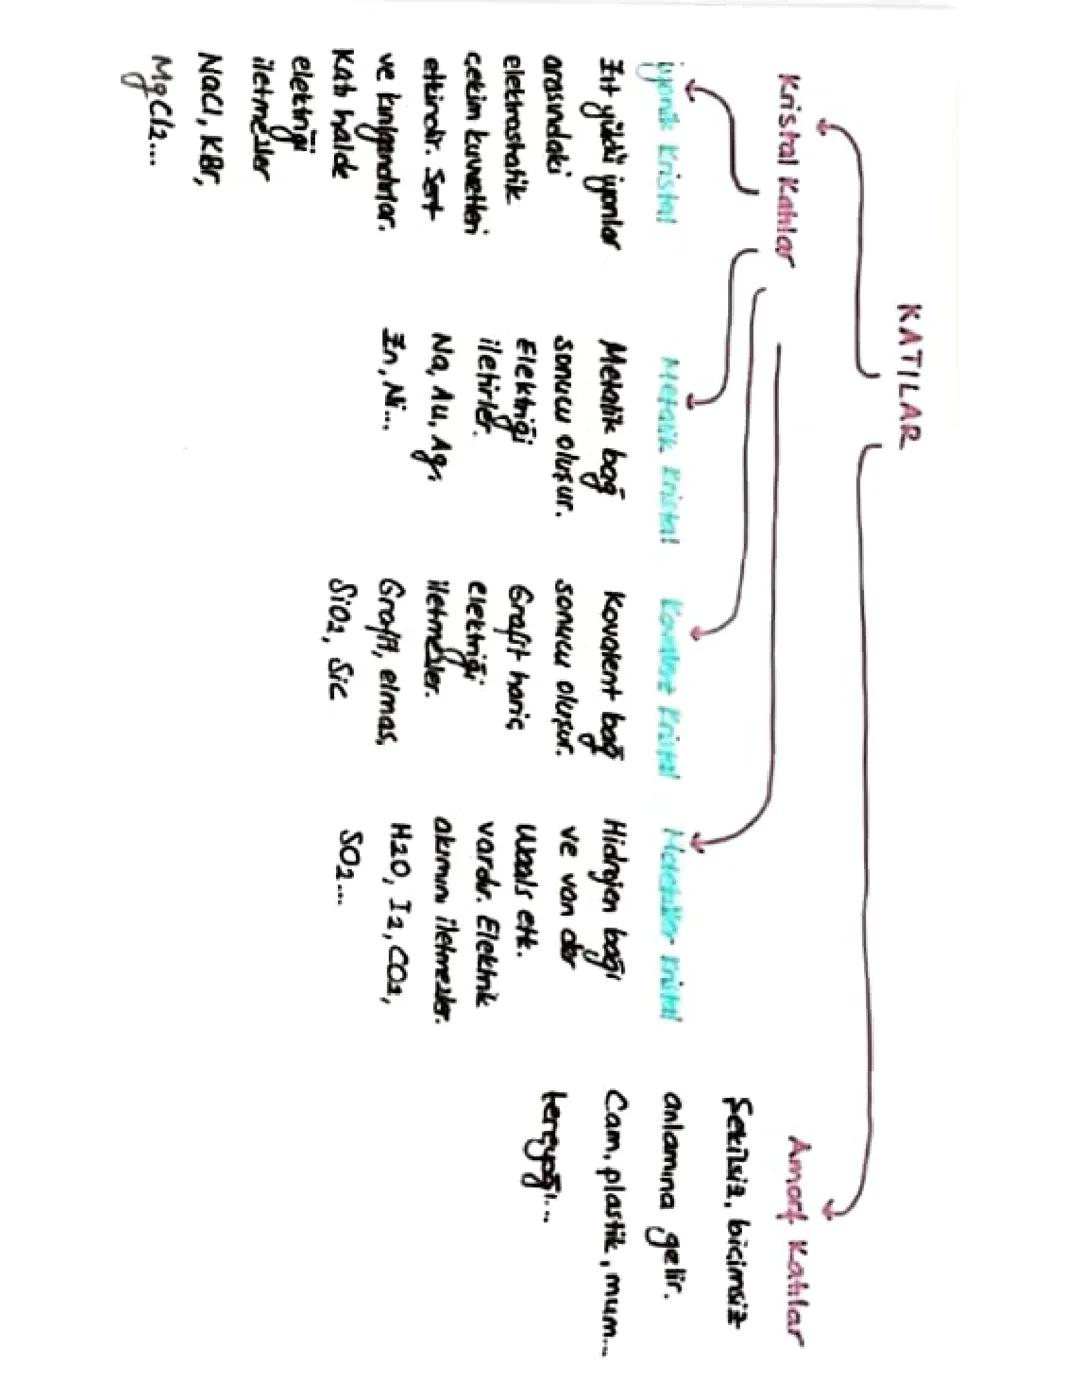 KATILAR
Kristal Katılar
İyonik Kristal
Zıt yüklü iyonlar
arasındaki
elektrostatik
çekim kuvvetleri
etkindir. Sert
ve kırılgandırlar.
Katı halde
elektriği
iletmezler
NaCl, KBr,
MgCl2...
Metalik Kristal
Metalik bağ
sonucu oluşur.
Elektriği
iletirler.
Na, Au, Ag,
Zn, Ni...
Kovalent Kristal
Kovalent bağ
sonucu oluşur.
Grafit hariç
elektriği
iletmezler.
Grafit, elmas,
SiO2, SiC
Moleküler Kristal
Hidrojen bağı
ve van der
Waals etk.
vardır. Elektrik
akımını iletmezler.
H2O, I2, CO2,
SO2...
Amorf Katılar
Şekilsiz, biçimsiz
anlamına gelir.
Cam, plastik, mum...
tereyağı...